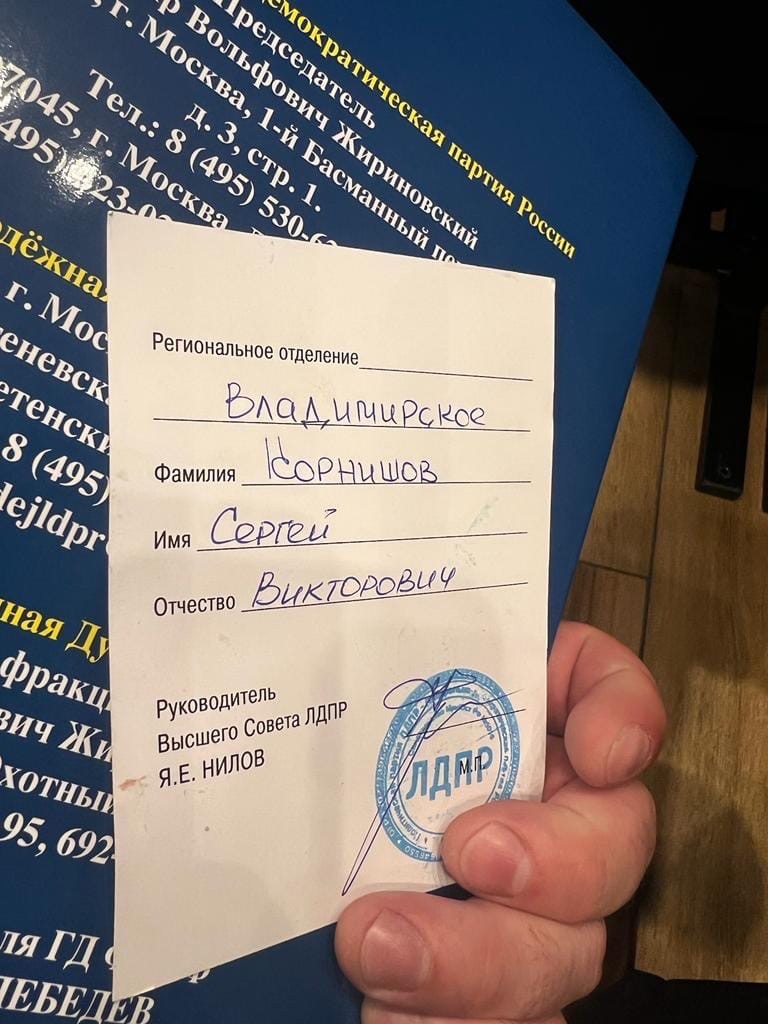 демократическая партия России
Председатель
р Вольфович Жириновский
, г. Москва, 1-й Басманный
д. 3, стр. 1.
Тел.: 8 (495) 530-6
7045, г. Москва,
495)
г. Мос
8 (495)
dejldpr
ная Ду
фракц
вич Жи
хотный
95, 692-
ля ГД ф р
ЛЕБЕДЕВ
Региональное отделение
Владимирское
Фамилия Корнишов
Имя Сергей
Отчество Викторович
Руководитель
Высшего Совета ЛДПР
Я.Е. НИЛОВ
ЛДПР
М.П.